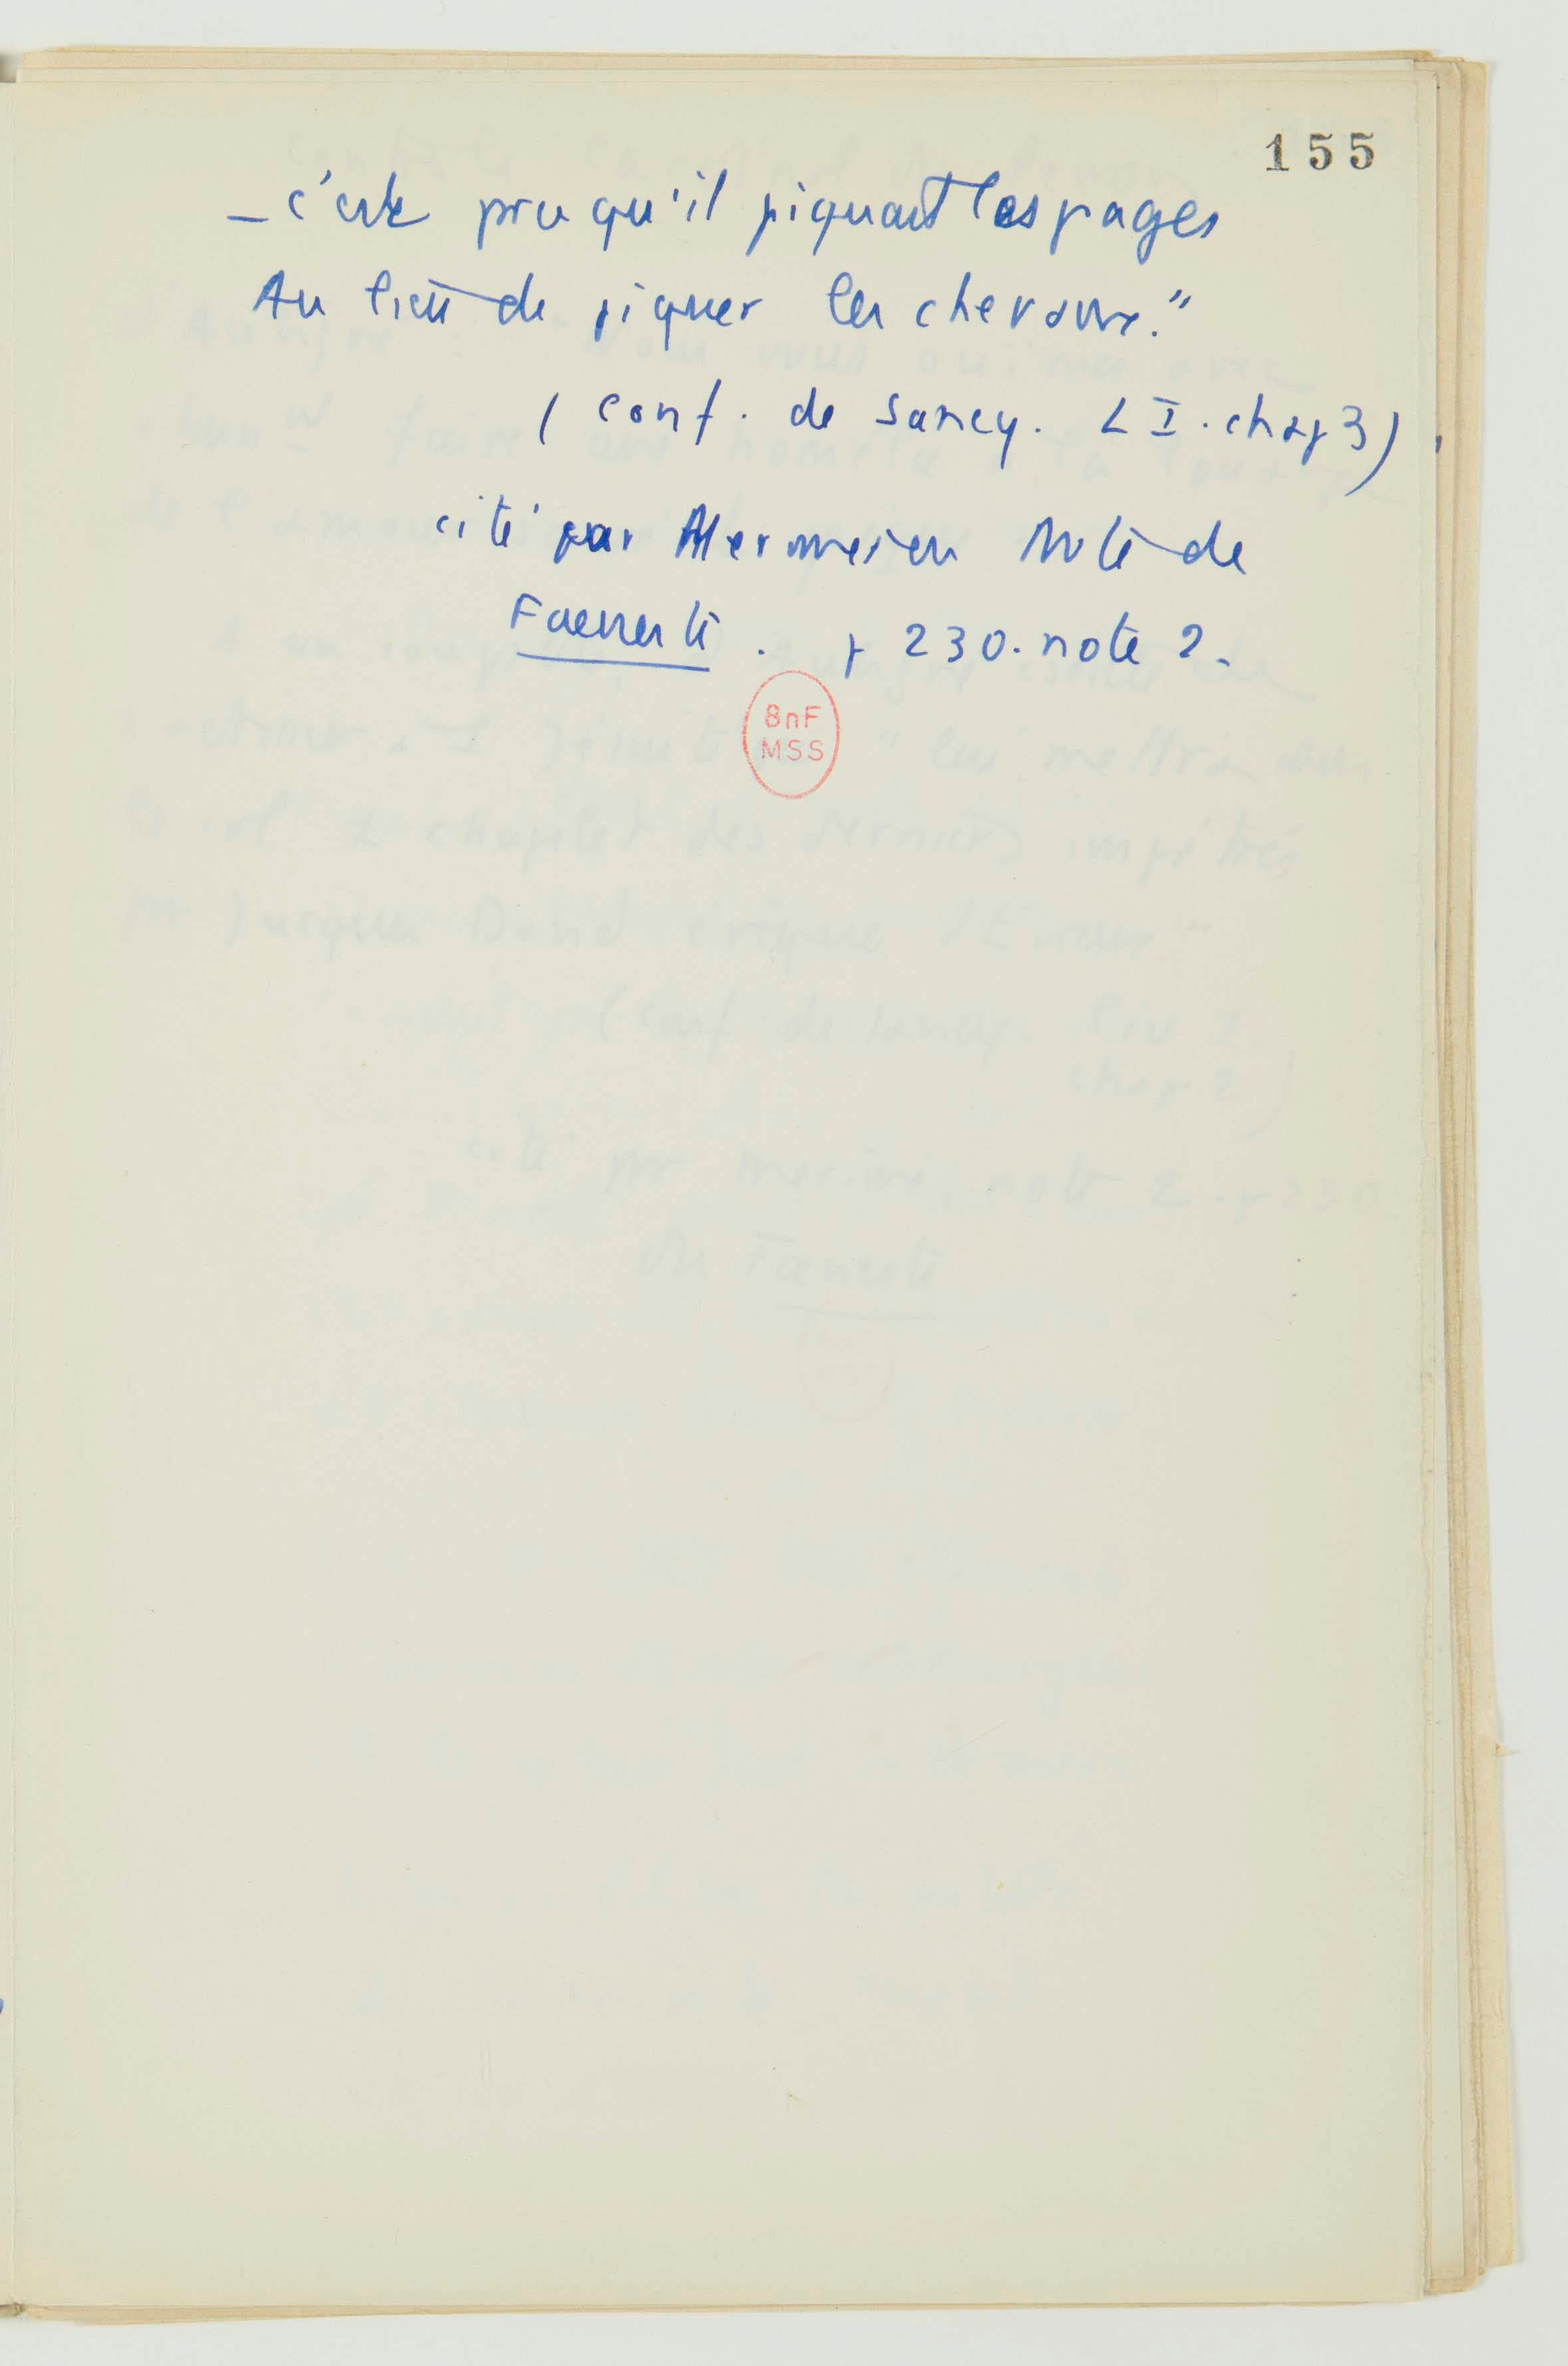 155
— c'est pcq qu'il piquait les pages
Au lieu de piquer les chevaux."
( conf. de Sancy. L I. chap 3).
cité par Mermeieu Note de
Faeneste. p 230. note 2.
BnF
MSS